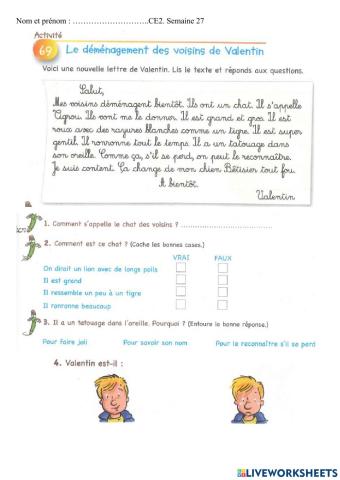 Nom et prénom : ………………………….CE2. Semaine 27
Activité
69 Le déménagement des voisins de Valentin
Voici une nouvelle lettre de Valentin. Lis le texte et réponds aux questions.
Salut,
Mes voisins déménagent bientôt. Ils ont un chat. Il s'appelle
Tigrou. Ils vont me le donner. Il est grand et gros. Il est
roux avec des rayures blanches comme un tigre. Il est super
gentil. Il ronronne tout le temps. Il a un tatouage dans
son oreille. Comme ça, s'il se perd, on peut le reconnaître.
Je suis content. Ça change de mon chien Bêtisier tout fou.
A bientôt.
Valentin
1. Comment s'appelle le chat des voisins ? ................................
2. Comment est ce chat ? (Coche les bonnes cases.)
VRAI FAUX
On dirait un lion avec de longs poils
Il est grand
Il ressemble un peu à un tigre
Il ronronne beaucoup
3. Il a un tatouage dans l'oreille. Pourquoi ? (Entoure la bonne réponse.)
Pour faire joli Pour savoir son nom Pour le reconnaître s'il se perd
4. Valentin est-il :
LIVEWORKSHEETS